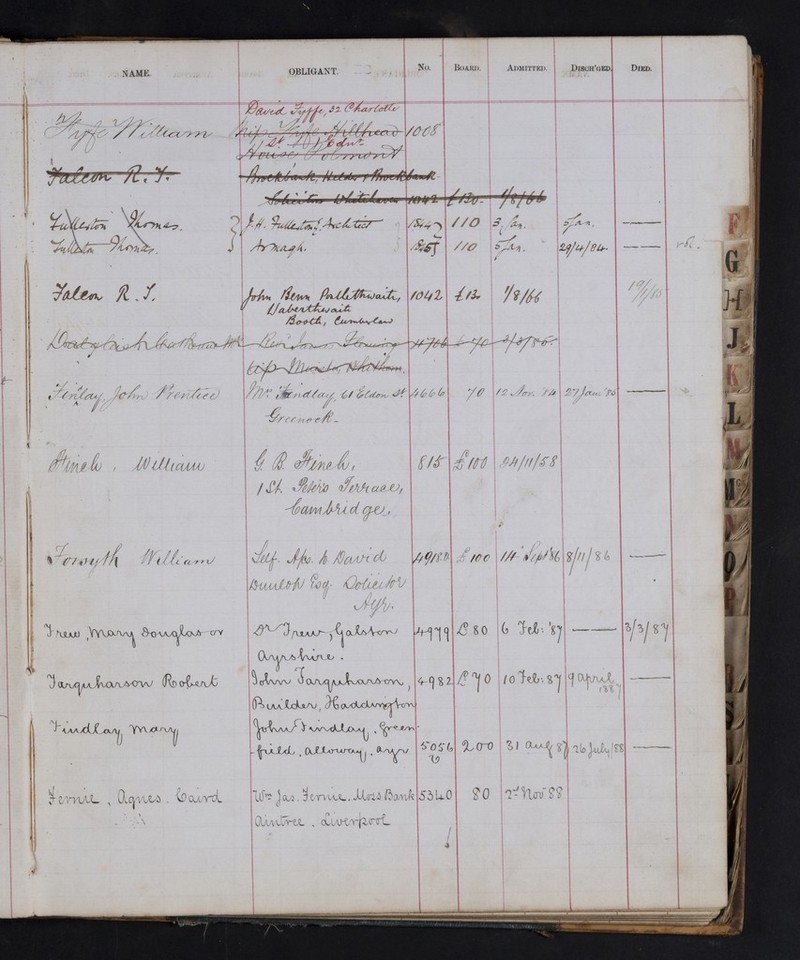 NAME. OBLIGANT. No. BOARD. ADMITTED. DISCH'GED. DIED.
David Fyffe, 32 Charlotte
Fyfe William Hillhead 1008
St Edinr.
House Polmont
Falcon R. J. Brockbank, Helder & Brockbank
Solicitors Whitehaven 1042 £130- 1/8/66
Fullerton Thomas. J. H. Fullerton, Architect 110 5 Jan.
Fullerton Thomas. Armagh. 110 5 Jan. 29/4/84
Falcon R. J. John Benn 1042 £130 1/8/66
Booth, Cumberland
Finlay John Prentice Mr Findlay, 61 Eldon St 4666 70 12 Nov. 27 Jany.
Greenock.
Finch, William G. B. Finch, 815 £100 24/11/58
1 St. Peter's Terrace,
Cambridge.
Forsyth William Self. Aps. to David £100 14 Sept 86 8/11/86
Dunlop Esq. Solicitor
Ayr.
Frew, Mary Douglas or Dr Frew, Galston 4979 £80 6 Feb: '87 3/3/87
Ayrshire.
Farquharson Robert John Farquharson, 4982 £70 10 Feb: 87 9 April
1887
Builder, Haddington
Findlay Mary John Findlay, Green
-field, Alloway, Ayr 5056 200 31 Aug 87 26 July/88
Fernie, Agnes Caird Wm Jas. Fernie. Moss Bank 5340 80 2d Nov 88
Aintree. Liverpool
F
G
H
J
K
L
M
Mc
N
O
P
S